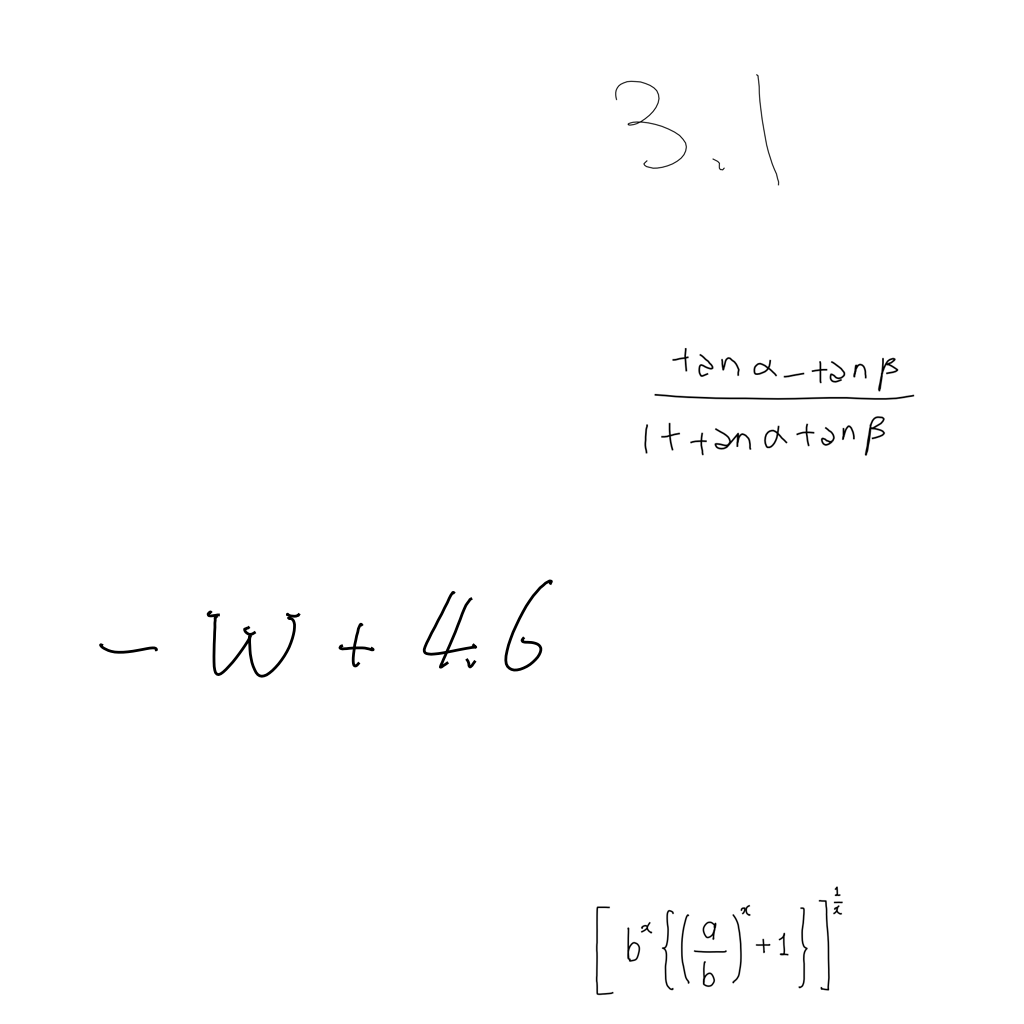 3.1
\frac{\tan \alpha - \tan \beta}{1 + \tan \alpha \tan \beta}
- w + 4.6
\left[ b^{x} \left\{ \left( \frac{a}{b} \right)^{x} + 1 \right\} \right]^{\frac{1}{x}}